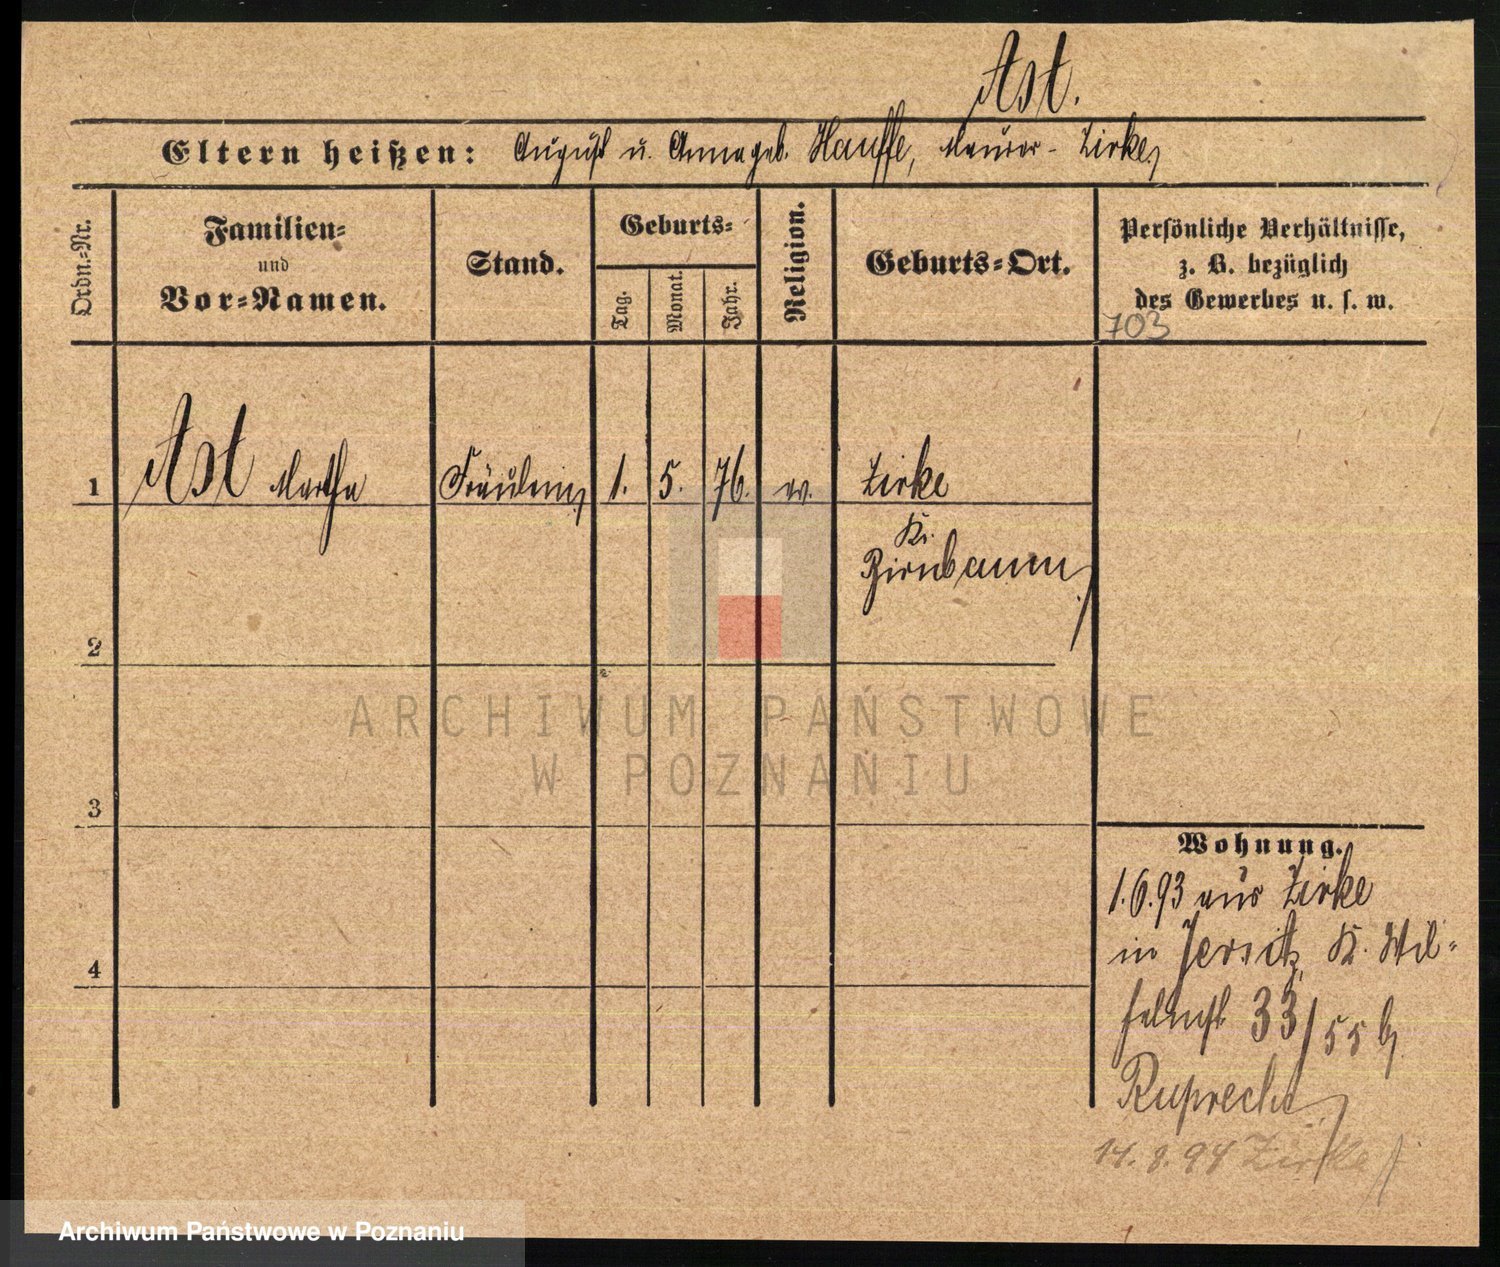 Ast.
Eltern heißen: August u. Anna geb. Hauffe, Maurer - Zirke
Ordn.-Nr.
Familien-
und
Vor-Namen.
Stand.
Geburts-
Tag.
Monat.
Jahr.
Religion.
Geburts-Ort.
Persönliche Verhältnisse,
z. B. bezüglich
des Gewerbes u. s. w.
703
1 Ast Martha Fräulein 1. 5. 76. ev. Zirke
Kr.
Birnbaum
2
3
4
Wohnung.
1.6.93 aus Zirke
in Jersitz, K. Wil-
helmst 33/55 b
Ruprecht
14. 8. 94 Zirke
ARCHIWUM PAŃSTWOWE
W POZNANIU
Archiwum Państwowe w Poznaniu